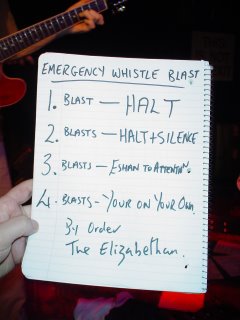 EMERGENCY WHISTLE BLAST
1. BLAST — HALT
2. BLASTS — HALT + SILENCE
3. BLASTS — ESHAN TO ATTENTION.
4. BLASTS - YOUR ON YOUR OWN
By Order
The Elizabethan.